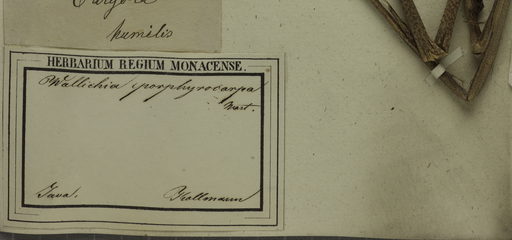 humilis
HERBARIUM REGIUM MONACENSE.
Wallichia porphyrocarpa
Mart.
Java. Kollmann